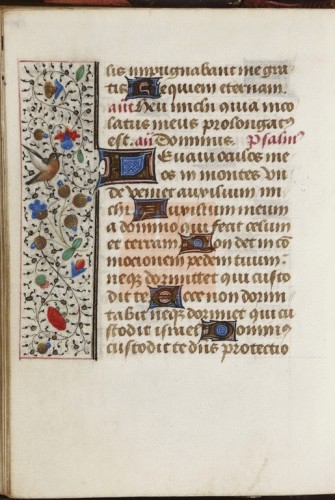 lis impugnabant me gra
tis Requiem eternam.
an̄ Heu michi quia inco
latus meus prolongat9
est. an̄ Dominus. Psalm9
Levavi oculos me
os in montes vn
de veniet auxilium mi
chi Auxilium meum
a domino qui fecit celum
et terram Non det in cō
mocionem pedem tuum:
neqꝫ dormitet qui custo
dit te Ecce non dormi
tabit neqꝫ dormiet qui cu
stodit israel Dominus
custodit te dn̄s protectio